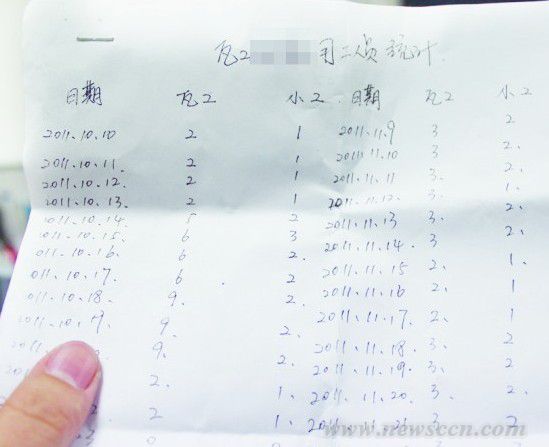 瓦工 司工人员统计
日期 瓦工 小工 日期 瓦工 小工
2011.10.10 2 1 2011.11.9 3 2
2011.10.11. 2 1 2011.11.10 3 2.
2011.10.12. 2 1 2011.11.11 3. 2.
2011.10.13. 2 1 2011.11.12. 3 1.
011.10.14. 5 2 2011.11.13 3 2.
011.10.15. 6 3 2011.11.14. 3 2.
011.10.16. 6 2. 2011.11.15 2. 1.
011.10.17. 6 2. 2011.11.16 2. 1
011.10.18. 9. 2. 2011.11.17. 2. 1
011.10.19. 9. 2. 2011.11.18. 3. 2
9. 2. 2011.11.19. 3. 2
2. 1. 2011.11.20. 3. 2
2 1. 2011.11.21 3 2
www.newsccn.com